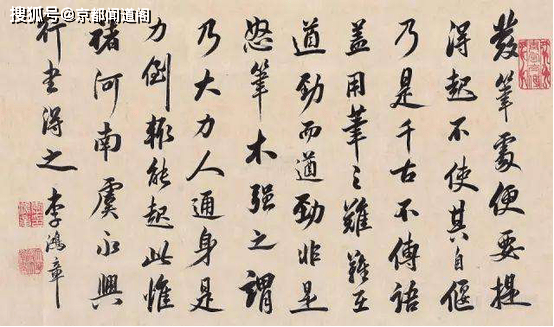 搜狐号@京都闻道阁
發筆處便要提
得起不使其自偃
乃是千古不傳語
蓋用筆之難難在
遒勁而遒勁非是
怒筆木强之謂
乃大力人通身是
力倒輒能起此惟
褚河南虞永興
行書得之 李鴻章